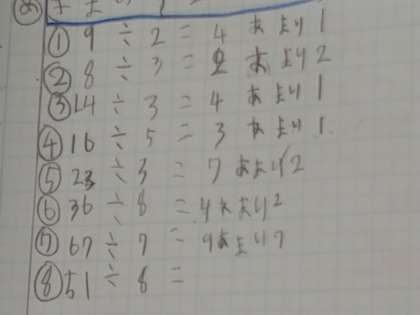 ① 9 ÷ 2 = 4 あまり 1
② 8 ÷ 3 = 2 あまり 2
③ 14 ÷ 3 = 4 あまり 1
④ 16 ÷ 5 = 3 あまり 1
⑤ 23 ÷ 3 = 7 あまり 2
⑥ 36 ÷ 8 = 4 あまり 2
⑦ 67 ÷ 7 = 9 あまり 7
⑧ 51 ÷ 8 =